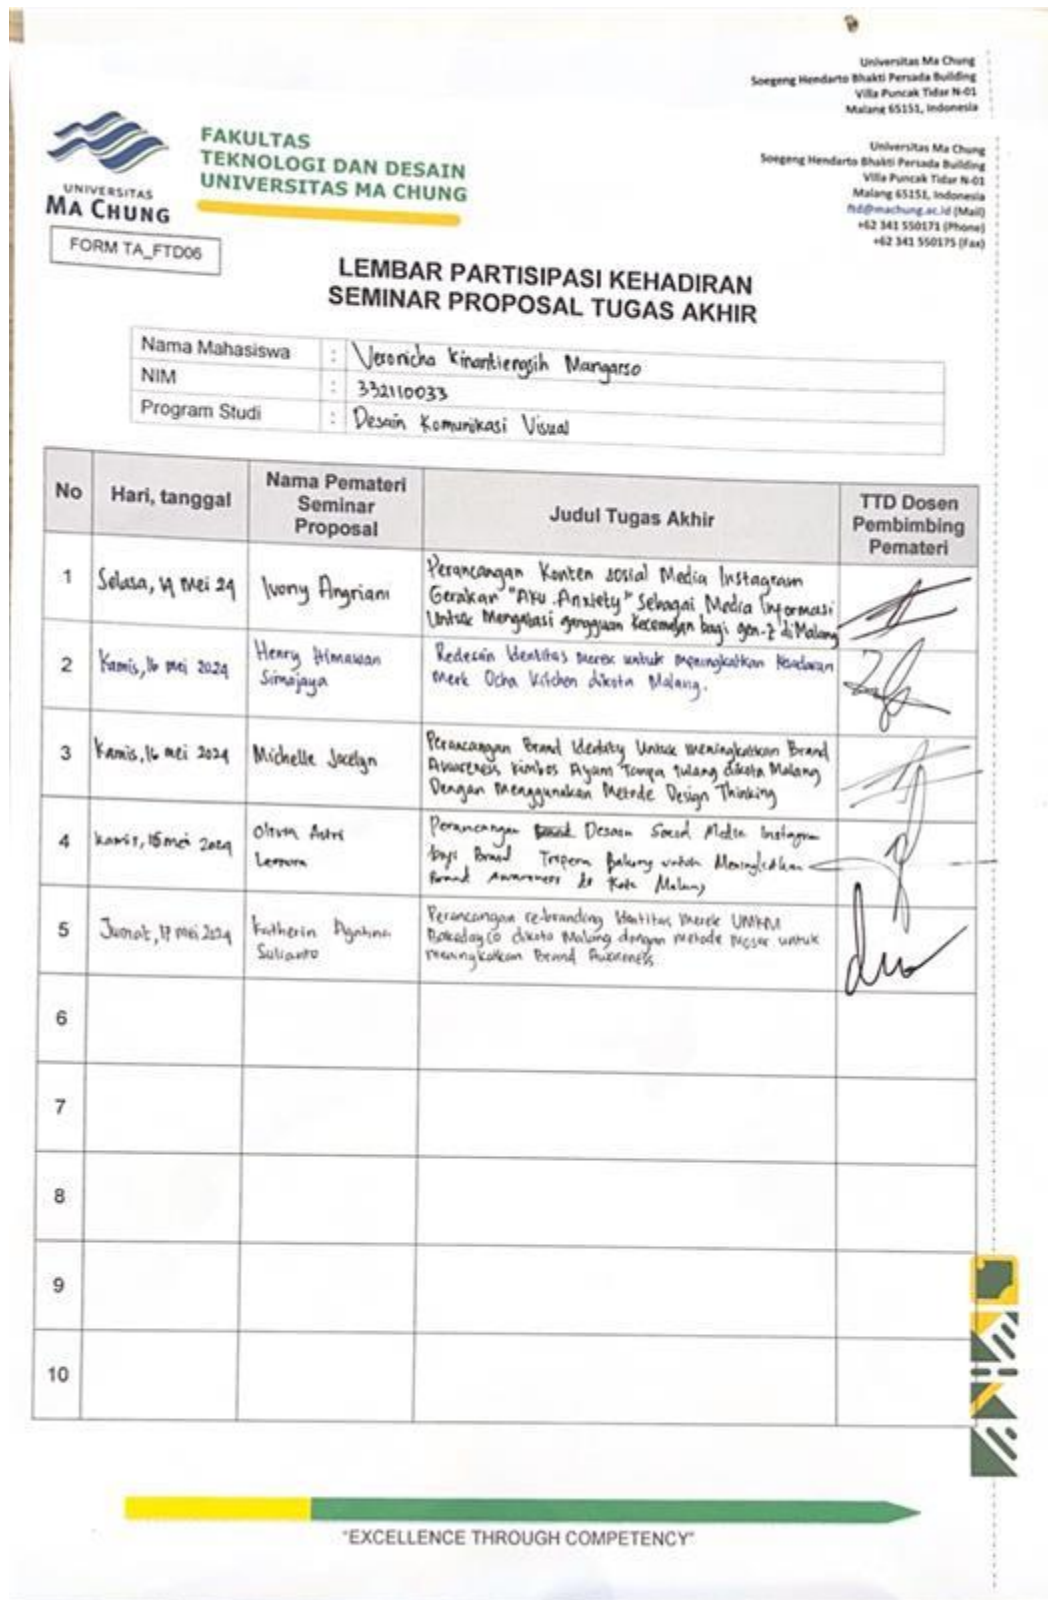 Universitas Ma Chung
Soegeng Hendarto Bhakti Persada Building
Villa Puncak Tidar N-01
Malang 65151, Indonesia
Universitas Ma Chung
Soegeng Hendarto Bhakti Persada Building
Villa Puncak Tidar N-01
Malang 65151, Indonesia
ftd@machung.ac.id (Mail)
+62 341 550171 (Phone)
+62 341 550175 (Fax)
UNIVERSITAS
MA CHUNG
FAKULTAS
TEKNOLOGI DAN DESAIN
UNIVERSITAS MA CHUNG
FORM TA_FTD06
LEMBAR PARTISIPASI KEHADIRAN
SEMINAR PROPOSAL TUGAS AKHIR
Nama Mahasiswa : Veronicha Kinantiengsih Mangarso
NIM : 332110033
Program Studi : Desain Komunikasi Visual
No Hari, tanggal Nama Pemateri Seminar Proposal Judul Tugas Akhir TTD Dosen Pembimbing Pemateri
1 Selasa, Mei 24 Ivony Angriani
Perancangan Konten sosial Media Instagram
Gerakan "Aku .Anxiety" Sebagai Media Informasi
Untuk Mengatasi gangguan kecemasan bagi gen-Z di Malang
2 Kamis, 16 mei 2024 Henry Himawan
Simajaya
Redesain Identitas merek untuk meningkatkan Kesadaran
Merk Ocha Kitchen dikota Malang.
3 Kamis, 16 mei 2024 Michelle Jocelyn
Perancangan Brand Identity Untuk meningkatkan Brand
Awareness Kimbos Ayam Tanpa tulang dikota Malang
Dengan Menggunakan Metode Design Thinking
4 kamis, 16 mei 2024
Perancangan Desain Social Media Instagram
bagi Brand Bakery untuk Meningkatkan
Brand Awareness di Kota Malang
5 Jumat, 17 mei 2024 Katherin
Sulianto
Perancangan re-branding Identitas merek UMKM
dikota Malang dengan metode untuk
meningkatkan Brand Awareness
6
7
8
9
10
"EXCELLENCE THROUGH COMPETENCY"